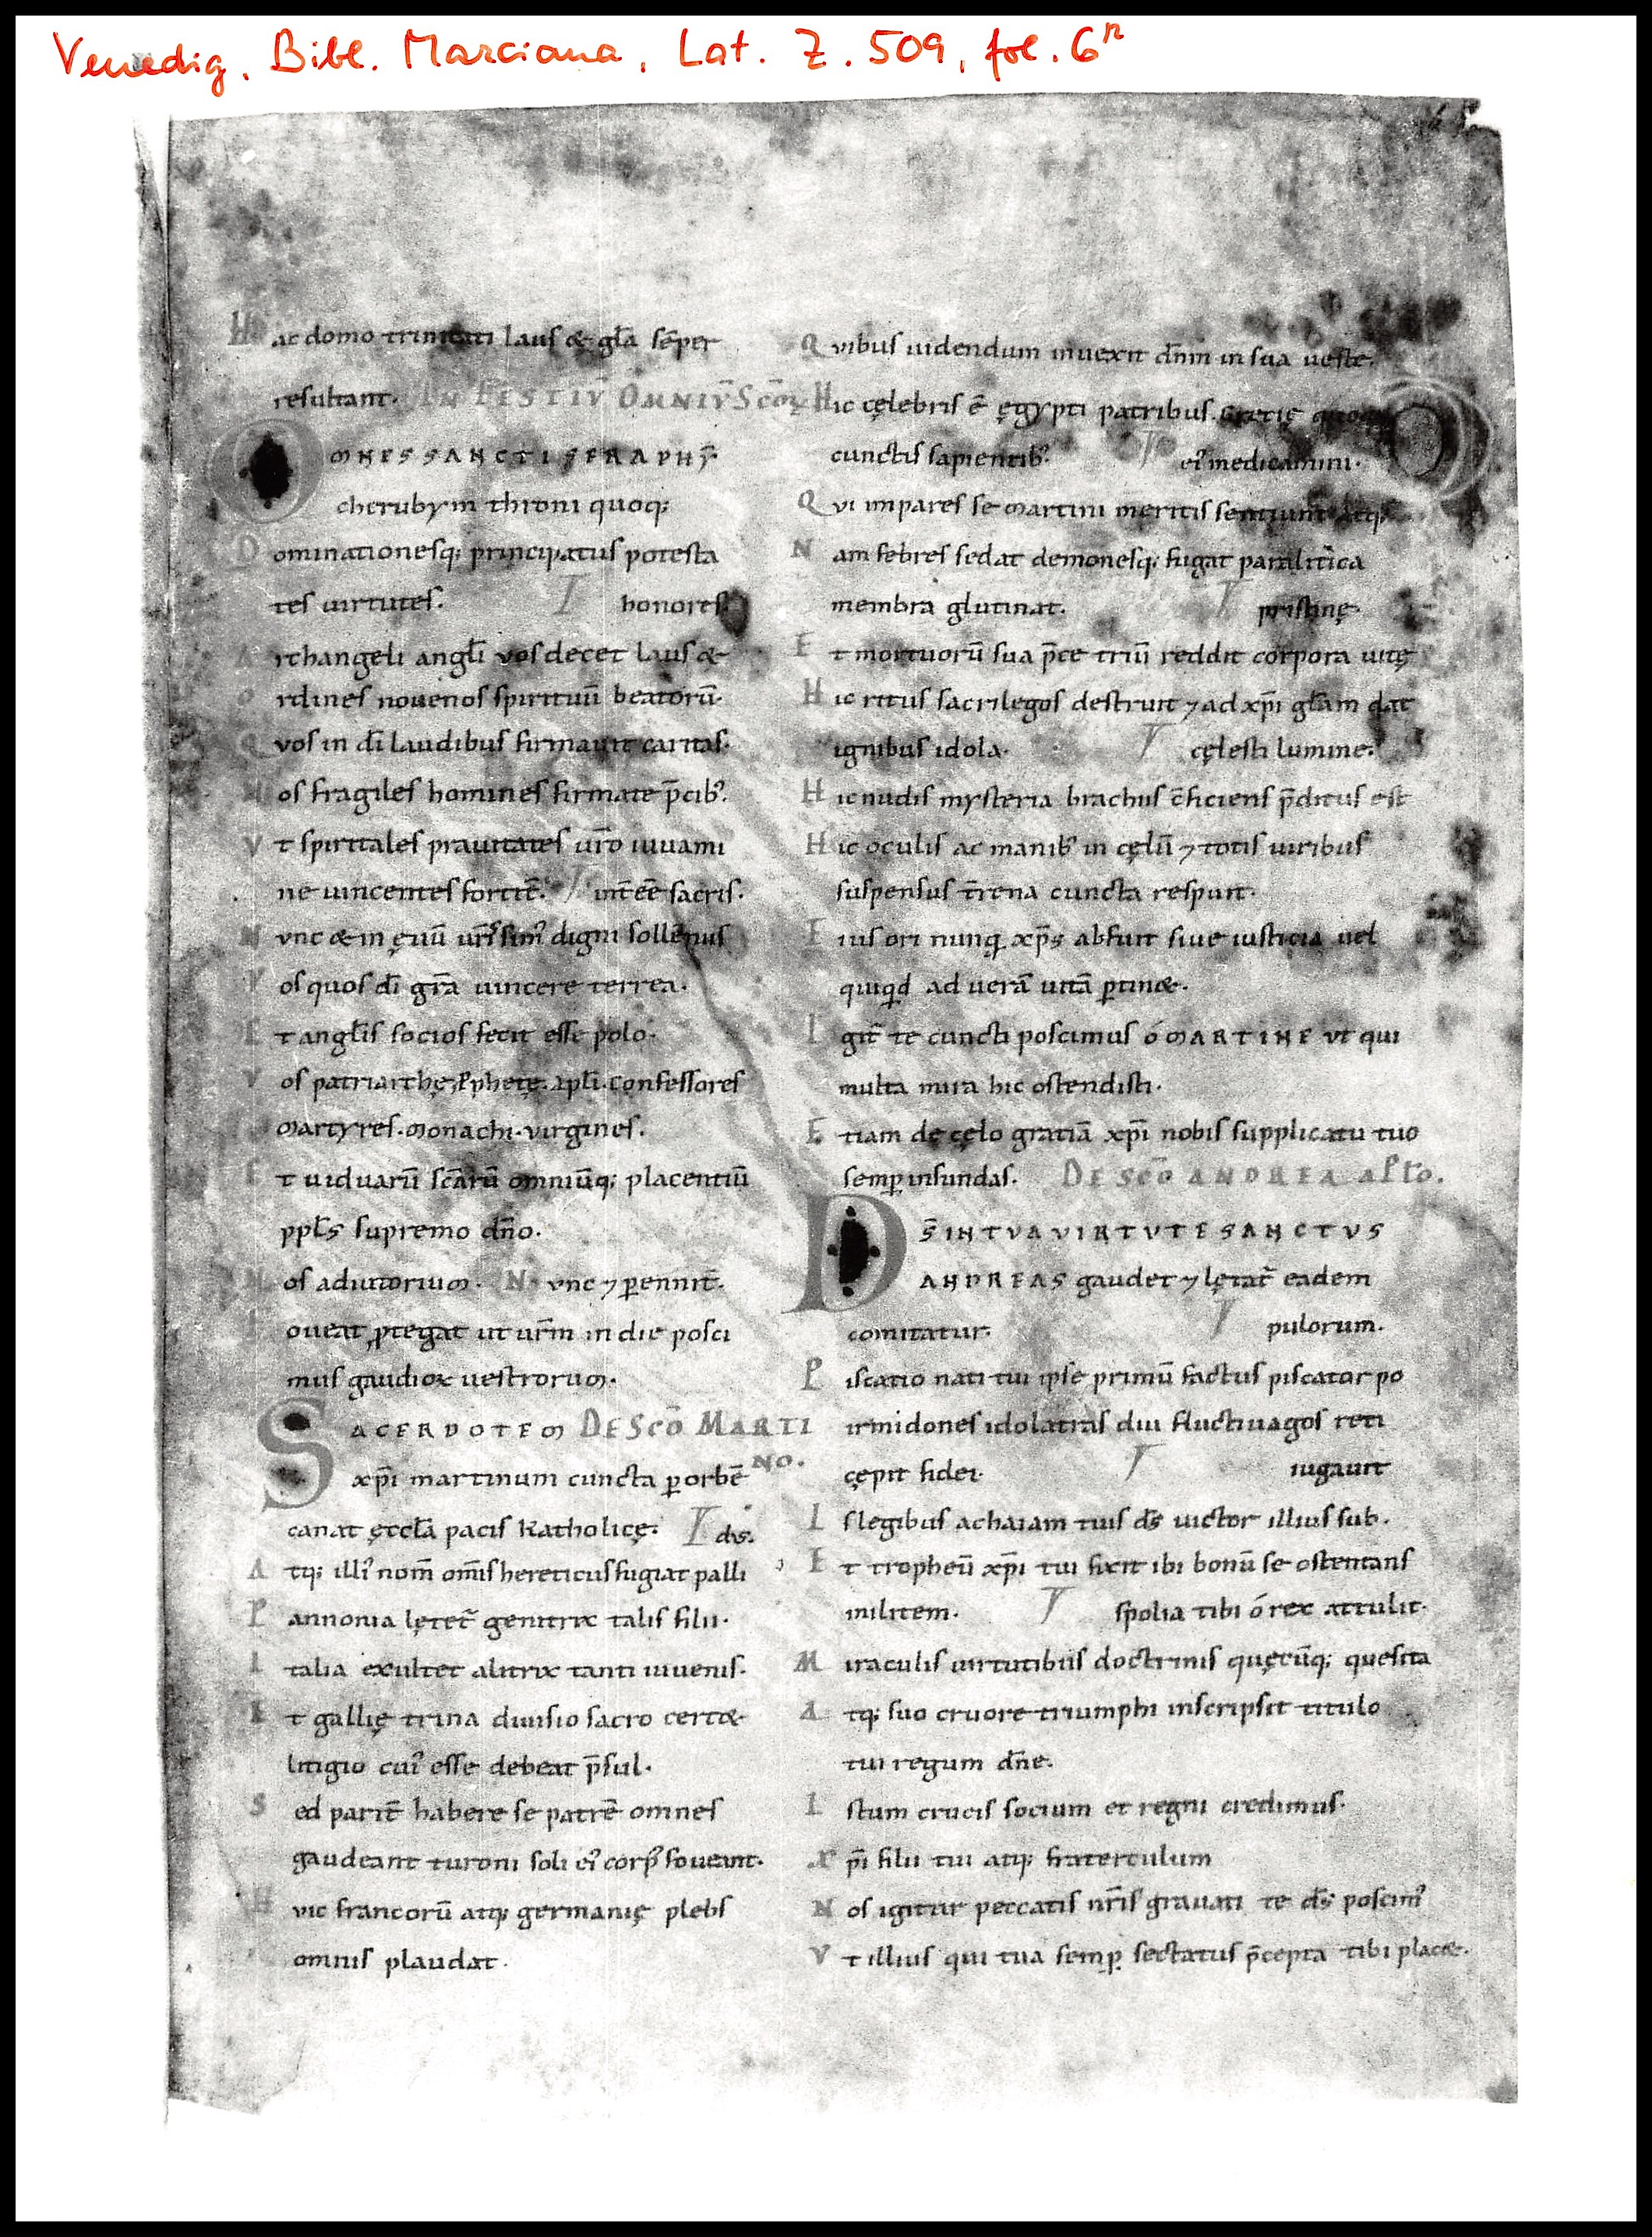 Venedig, Bibl. Marciana, Lat. Z. 509, fol. 6r
Hac domo trinitati laus & gła sēper
resultant. IN FESTIV̄ OMNIV̄ SCŌꝜ
OMNES SANCTI SERAPHȲ
cherubym throni quoq;
Dominationesq; principatus potesta
tes uirtutes. honores.
Archangeli angłi vos decet laus &
Ordines nouenos spirituū beatorū.
Qvos in dī laudibus firmauit caritas.
Nos fragiles homines firmate p̄cib᾽.
Vt spiritales prauitates ur̄o iuuami
ne uincentes fortit̄. int̄ēē sacris.
Nvnc & in ęuū ur̄is sim᾽ digni sollēnus
Vos quos dī gr̄a uincere terrea.
Et angłis socios fecit esse polo.
Vos patriarchę, ꝓphetę. apłi. confessores
martyres. monachi. virgines.
Et uiduarū sc̄arū omniūq; placentiū
ppłs supremo dn̄o.
Nos adiutorium. Nvnc ⁊ ꝑennit̄.
Foueat ꝓtegat ut ur̄m in die posci
mus gaudiox uestrorum.
SACERDOTEM DE SCŌ MARTI
NO.
xp̄i martinum cuncta ꝑ orbē
canat ęccła pacis Katholicę. dis.
Atq; illi᾽ nom̄ om̄is hereticus fugiat palli
Pannonia lętet᷑ genitrix talis filii.
Italia exultet alitrix tanti iuuenis.
Et gallię trina diuisio sacro cert&
litigio cui᾽ esse debeat p̄sul.
Sed parit̄ habere se patrē omnes
gaudeant turoni soli ei᾽ corp᾽ foueant.
Hvic francorū atq; germanię plebs
omnis plaudat.
Qvibus uidendum inuexit dn̄m in sua ueste.
Hic cęlebris ē ęgypti patribus. grecie quoq;
cunctis sapientib᾽. ei᾽ medicamini.
Qvi impares se martini meritis sentiunt atq;
Nam febres sedat demonesq; fugat paralitica
membra glutinat. pristinę
Et mortuorū sua p̄ce triū reddit corpora uitę
Hic ritus sacrilegos destruit ⁊ ad xp̄i głam dat
ignibus idola. cęlesti lumine.
Hic nudis mysteria brachiis c̄ficiens p̄ditus est
Hic oculis ac manib᾽ in cęlū ⁊ totis uiribus
suspensus t̄rena cuncta respuit.
Eius ori nunq̨ xp̄s abfuit siue iusticia vel
quiqd ad uerā uitā ꝑtin&.
Igit᷑ te cuncti poscimus ó MARTINE vt qui
multa mira hic ostendisti.
Etiam de cęlo gratiā xp̄i nobis supplicatu tuo
semꝑ infundas. DE SCŌ ANDREA APŁO.
DS̄ IN TVA VIRTVTE SANCTVS
ANDREAS gaudet ⁊ lętat᷑ eadem
comitatur. pulorum.
Piscatio nati tui ipse primū factus piscator po
irmidones idolatras diu fluctiuagos reti
cępit fidei. iugauit
Is legibus achaiam tuis ds̄ uictor illius sub.
Et tropheū xp̄i tui fixit ibi bonū se ostentans
militem. spolia tibi ó rex attulit.
Miraculis uirtutibus doctrinis quęcūq; quesita
Atq; suo cruore triumphi inscripsit titulo
tui regum dn̄e.
Istum crucis socium et regni credimus.
xp̄i filii tui atq; fraterculum
Nos igitur peccatis nr̄is grauati te ds̄ poscim᾽
Vt illius qui tua semꝑ sectatus p̄cepta tibi plac&.